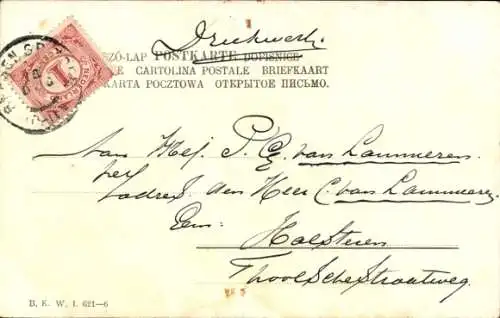 Drukwerk
SZÓ-LAP POSTKARTE DOPISNICE
LE CARTOLINA POSTALE BRIEFKAART
KARTA POCZTOWA ОТКРЫТОЕ ПИСЬМО.
1
Aan Mej. P. C. van Lammeren.
per
adres den Heer C. van Lammeren
Halsteren
Thoolschestraatweg.
B. K. W. I. 621—6